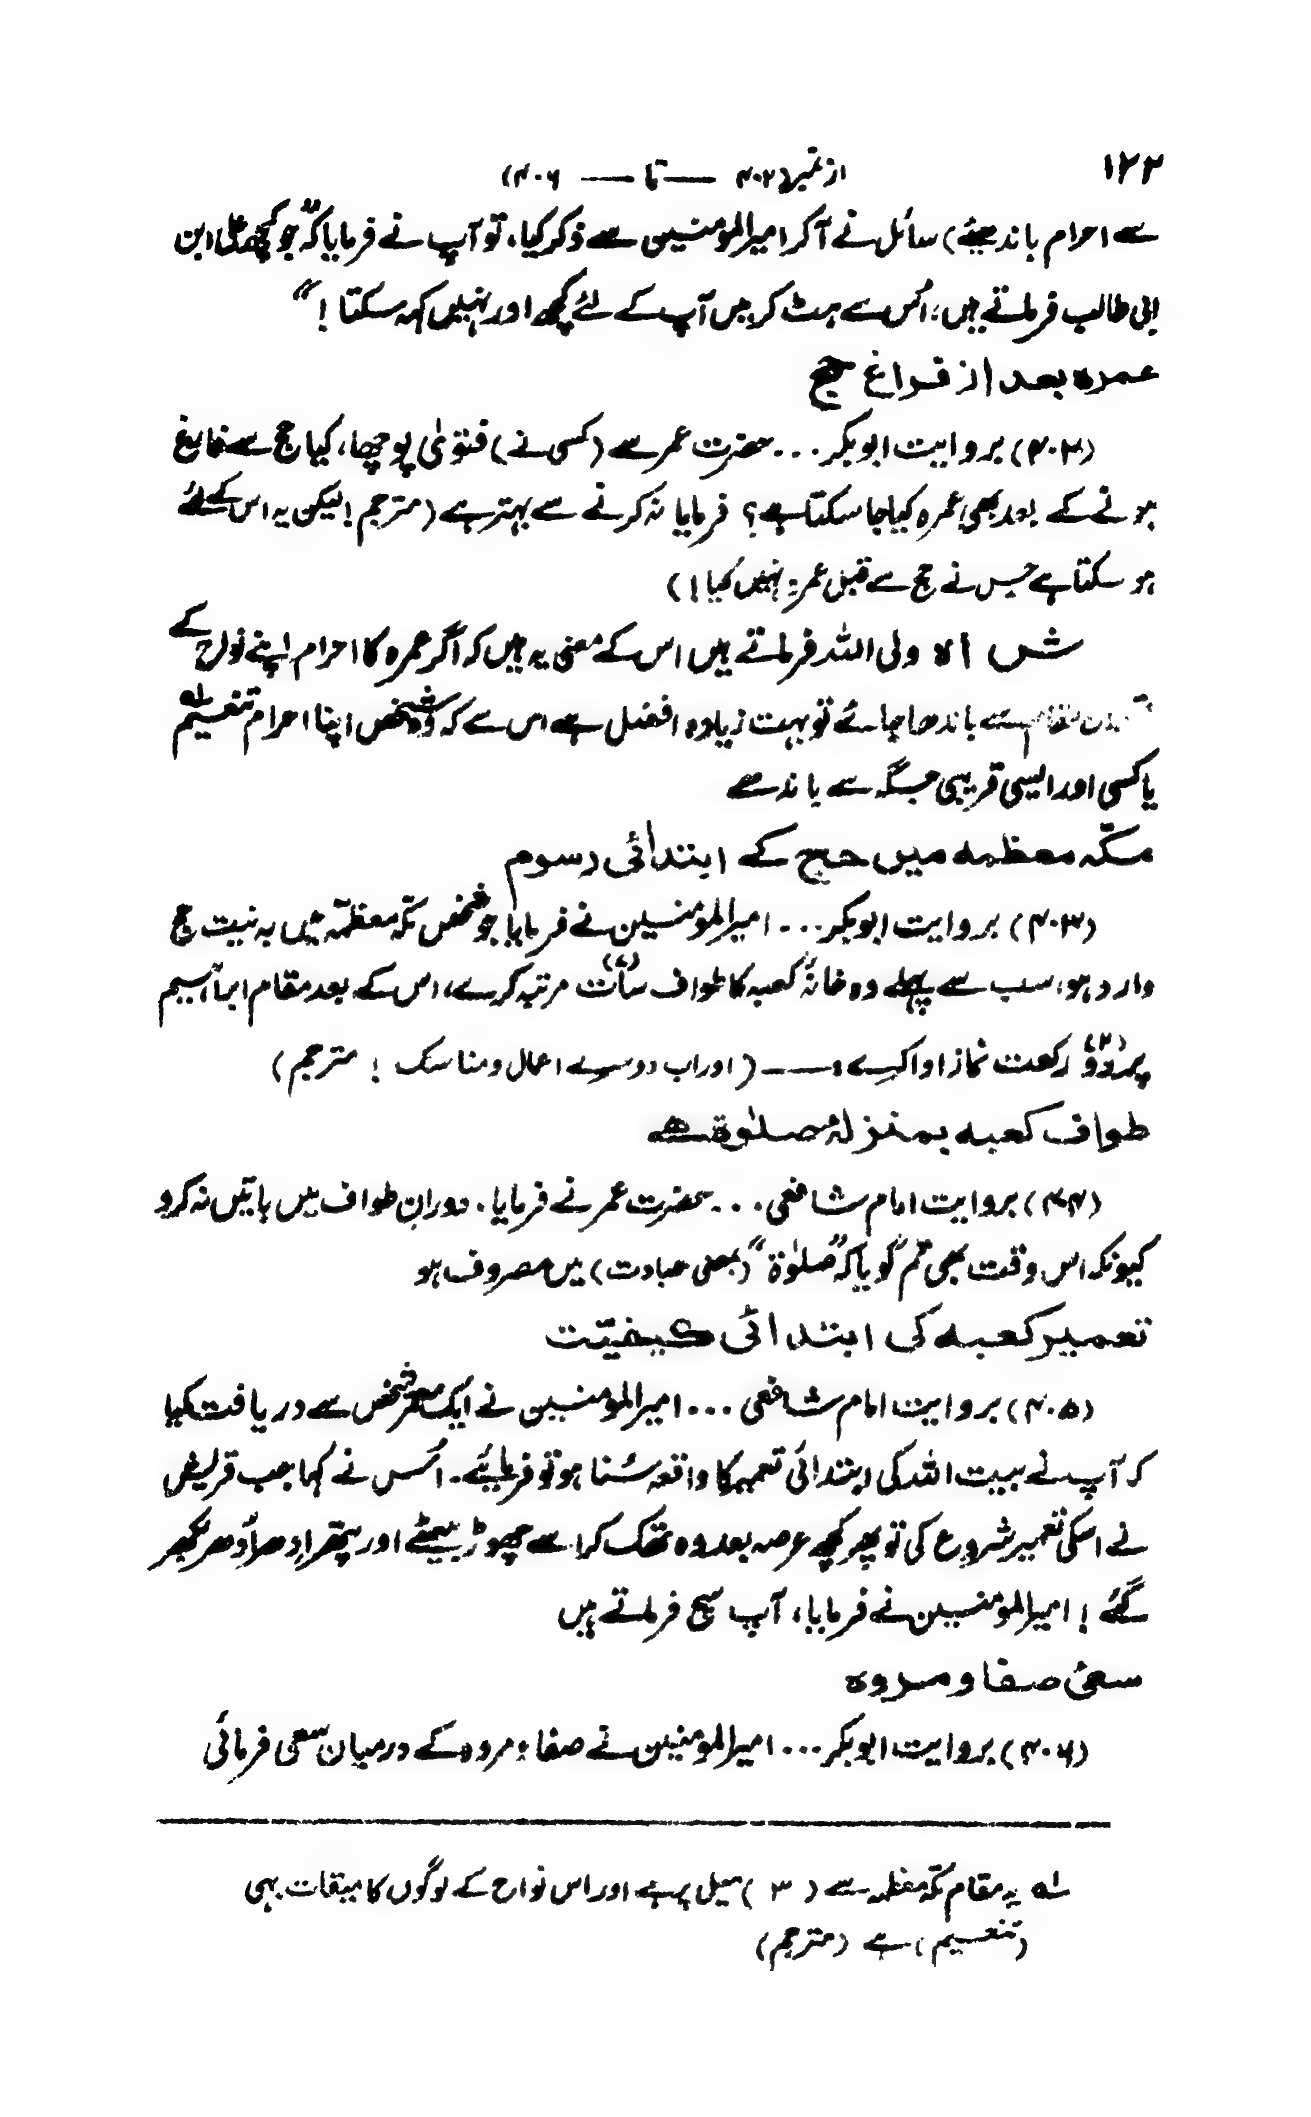 ۱۲۲
از نمبر (۴۰۲ — تا — ۴۰۶)
سے احرام باندھیئے) سائل نے آکر امیرالمومنیین سے ذکر کیا، تو آپ نے فرمایا کہ "جو کچھ علی ابن
ابی طالب فرماتے ہیں، اُس سے ہٹ کر میں آپ کے لئے کچھ اور نہیں کہہ سکتا !"
عمرہ بعد از فراغ حج
(۴۰۲) بروایت ابوبکر ... حضرت عمر سے (کسی نے) فتویٰ پوچھا، کیا حج سے فارغ
ہونے کے بعد بھی عمرہ کیا جا سکتا ہے؟ فرمایا نہ کرنے سے بہتر ہے (مترجم! لیکن یہ اس کے لئے
ہو سکتا ہے جس نے حج سے قبل عمرہ نہیں کیا!)
شاہ ولی اللہ فرماتے ہیں اس کے معنی یہ ہیں کہ اگر عمرہ کا احرام اپنے نواح کے
مقام سے باندھا جائے تو بہت زیادہ افضل ہے اس سے کہ وہ شخص اپنا احرام تنعیم لہ
یا کسی اور ایسی قریبی جگہ سے باندھے
مکّہ معظمہ میں حج کے ابتدائی رسوم
(۴۰۳) بروایت ابوبکر ... امیرالمومنین نے فرمایا جو شخص مکّہ معظمّہ میں بہ نیت حج
وارد ہو، سب سے پہلے وہ خانہ کعبہ کا طواف سات (۷) مرتبہ کرے، اس کے بعد مقام ابراہیم
پر دو (۲) رکعت نماز ادا کرے، — (اور اب دوسرے اعمال و مناسک ! مترجم)
طواف کعبہ بمنزلہٴ صلوٰۃ ہے
(۴۰۴) بروایت امام شافعی ... حضرت عمر نے فرمایا. دورانِ طواف میں باتیں نہ کرو
کیونکہ اس وقت بھی تم گویا کہ "صلوٰۃ" (بمعنی عبادت) میں مصروف ہو
تعمیر کعبہ کی ابتدائی کیفیّت
(۴۰۵) بروایت امام شافعی ... امیرالمومنین نے ایک معمر شخص سے دریافت کیا
کہ آپ نے بیت اللہ کی ابتدائی تعمیر کا واقعہ سُنا ہو تو فرمایئے. اُس نے کہا جب قریش
نے اسکی تعمیر شروع کی تو پھر کچھ عرصہ بعد وہ تھک کر اسے چھوڑ بیٹھے اور پتھر اِدھر اُدھر بکھر
گئے ! امیرالمومنین نے فرمایا، آپ سچ فرماتے ہیں
سعیٔ صفا و مروہ
(۴۰۶) بروایت ابوبکر ... امیرالمومنین نے صفا و مروہ کے درمیان سعی فرمائی
لہ یہ مقام مکّہ معظمہ سے (۳) میل پر ہے اور اس نواح کے لوگوں کا میقات یہی
(تنعیم) ہے (مترجم)